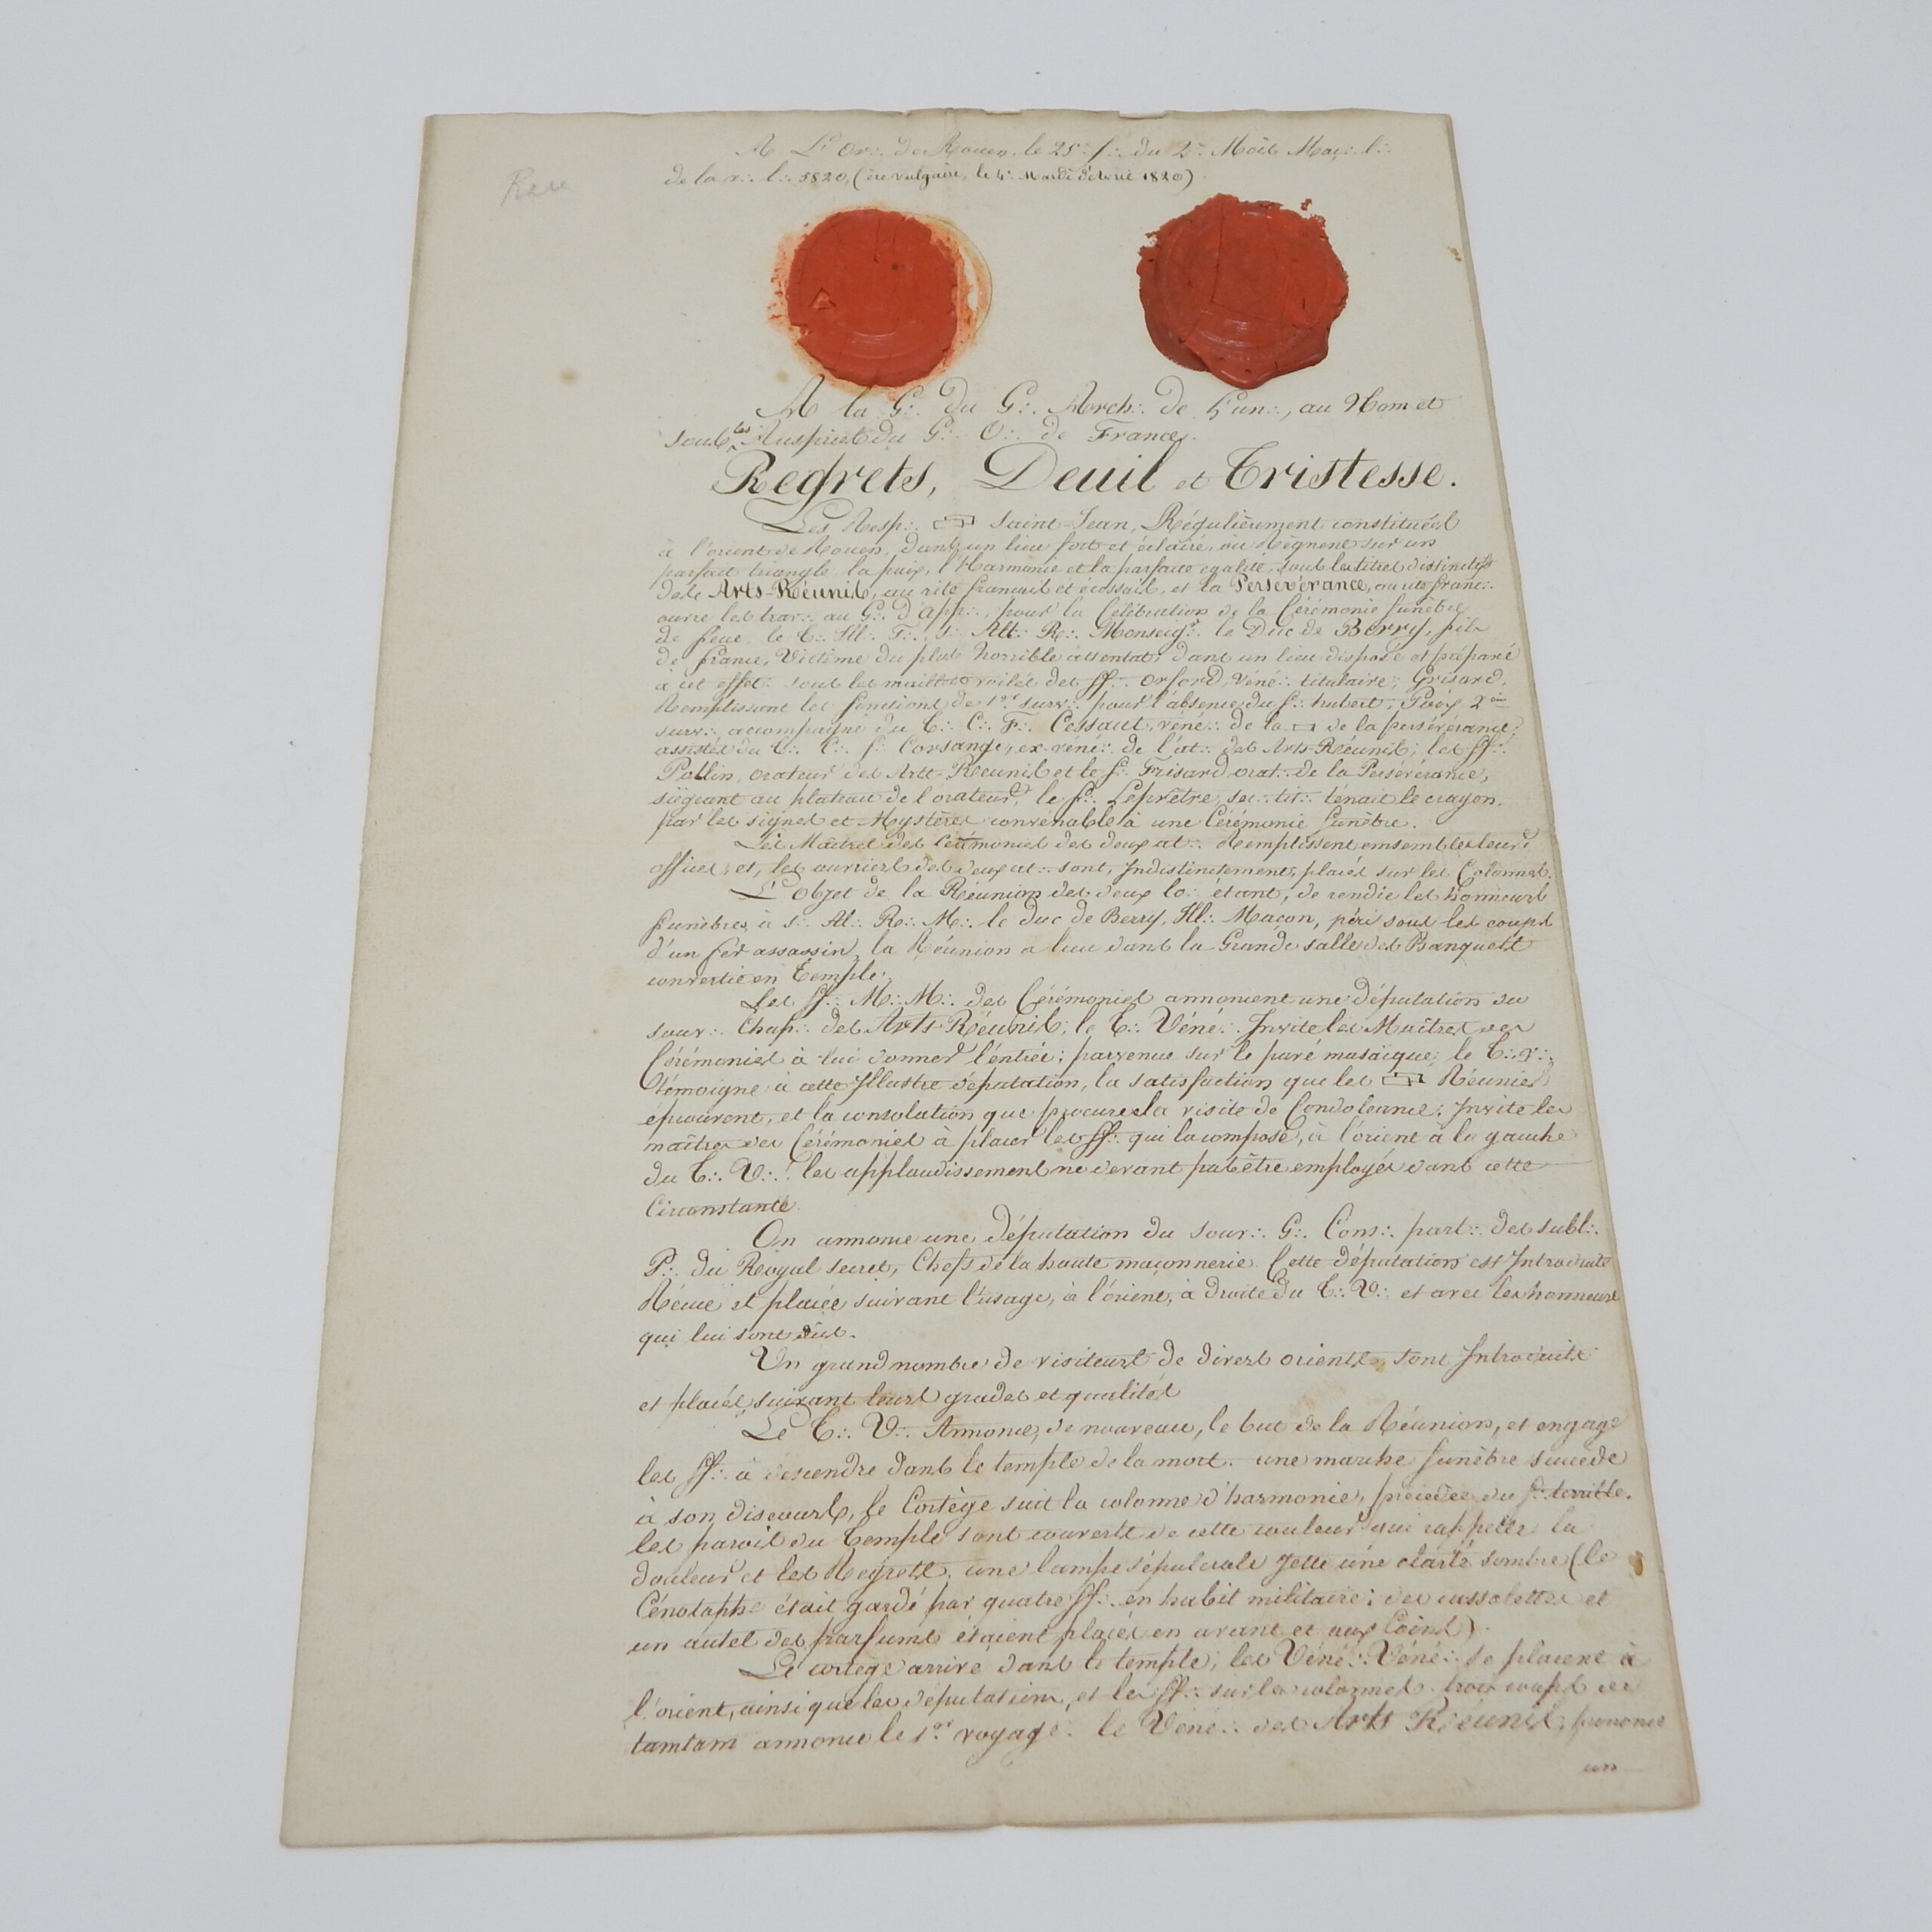 Rare
A L'Or∴ de Rouen, le 25e j∴ du 2e Mois Maç∴ l∴
de la v∴ l∴ 5820, (ère vulgaire, le 4e Mardi d'avril 1820).
A la G∴ du G∴ Arch∴ de l'un∴, au Nom et
sous les Auspices du G∴ O∴ de France.
Regrets, Deuil et Tristesse.
Les Resp∴ Saint Jean, Régulièrement constituées
à l'orient de Rouen, dans un lieu fort et éclairé, où Règnent sur un
parfait triangle la paix, l'Harmonie et la parfaite égalité, sous les titres distinctifs
des Arts-Réunis, au rite français et écossais, et la Persévérance, au rite franc∴
ouvre les trav∴ au G∴ d'app∴, pour la Célébration de la Cérémonie funèbre
de feue le T∴ Ill∴ F∴, S∴ Alt∴ R∴ Monseigr. le Duc de Berry, fils
de france, Victime du plus horrible attentat, dans un lieu disposé et préparé
à cet effet: sous les maillets voilés des ff∴ Orford, Véné∴ titulaire; Grisard,
Remplissant les fonctions de 1er surv∴ pour l'absence du f∴ hubert; 2ème
surv∴, accompagné du T∴ C∴ F∴ Cessaut, véné∴ de la de la persévérance;
assistés du T∴ C∴ f∴ Corsange, ex-véné∴ de l'at∴ des Arts-Réunis; les ff∴
Pottin, orateur des Arts-Réunis et le f∴ Frisard orat∴ de la Persévérance,
siégeant au plateau de l'orateur, le f∴ Leprêtre, sec∴ tit∴ tenait le crayon,
par les signes et Mystères convenable à une Cérémonie funèbre.
Les Maîtres des Cérémonies des deux at∴ Remplissent ensemble leurs
offices; et, les ouvriers des deux at∴ sont, Indistinctement, placés sur les Colonnes.
L'objet de la Réunion des deux lo∴ étant, de rendre les honneurs
funèbres à S∴ Al∴ R∴ M∴ le Duc de Berry, Ill∴ Maçon, péri sous les coups
d'un fer assassin, la Réunion a lieu dans la Grande salle des Banquets
convertie en Temple;
Les ff∴ M∴ M∴ des Cérémonies annoncent une députation du
souv∴ Chap∴ des Arts Réunis; le T∴ Véné∴ Invite les Maîtres des
Cérémonies à lui donner l'entrée; parvenue sur le pavé mosaïque; le T∴ V∴
témoigne à cette Illustre députation, la satisfaction que les Réunies
éprouvent, et la consolation que procure la visite de Condoleance; Invite les
maîtres des Cérémonies à placer les ff∴ qui la compose, à l'orient à la gauche
du T∴ V∴! les applaudissement ne devant pas être employés dans cette
Circonstance.
On annonce une députation du souv∴ G∴ Cons∴ part∴ des subl∴
P∴ du Royal secret, Chefs de la haute maçonnerie. Cette députation est Introduite
Réçue et placée suivant l'usage, à l'orient, à droite du T∴ V∴ et avec les honneurs
qui lui sont dûs.
Un grand nombre de visiteurs de divers orients, sont Introduits
et placés suivant leurs grades et qualités
Le T∴ V∴ Annonce, de nouveau, le but de la Réunion, et engage
les ff∴ à descendre dans le temple de la mort. une marche funèbre succede
à son discours, le Cortège suit la colonne d'harmonie, précédée du f∴ terrible.
les parois du Temple sont couverts de cette couleur qui rappelle la
douleur et les Regrets, une lampe sépulcrale jette une clarté sombre (le
Cénotaphe était gardé par quatre ff∴ en habit militaire; des cassolettes et
un autel des parfums étaient placés en avant et aux Coins).
Le cortege arrivé dans le temple, les Véné∴ Véné∴ se placent à
l'orient, ainsi que les députations, et les ff∴ sur les colonnes. trois coups de
tamtam annonce le 1er voyage. le Véné∴ des Arts Réunis; prononce
un